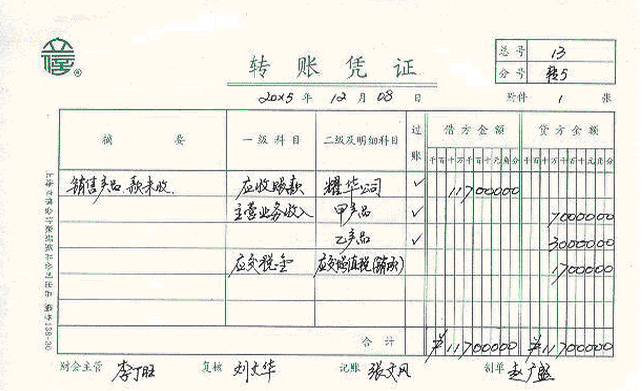 总号 13
转账凭证
分号 转5
20X5 年 12 月 08 日 附件 1 张
摘要 一级科目 二级及明细科目 过账 借方金额 贷方金额
千百十万千百十元角分 千百十万千百十元角分
销售产品,款未收 应收账款 耀华公司 ✓ 11700000
主营业务收入 甲产品 ✓ 7000000
乙产品 ✓ 3000000
应交税金 应交增值税(销项) 1700000
合计 ¥11700000 ¥11700000
财会主管 复核 刘文华 记账 张文凤 制单